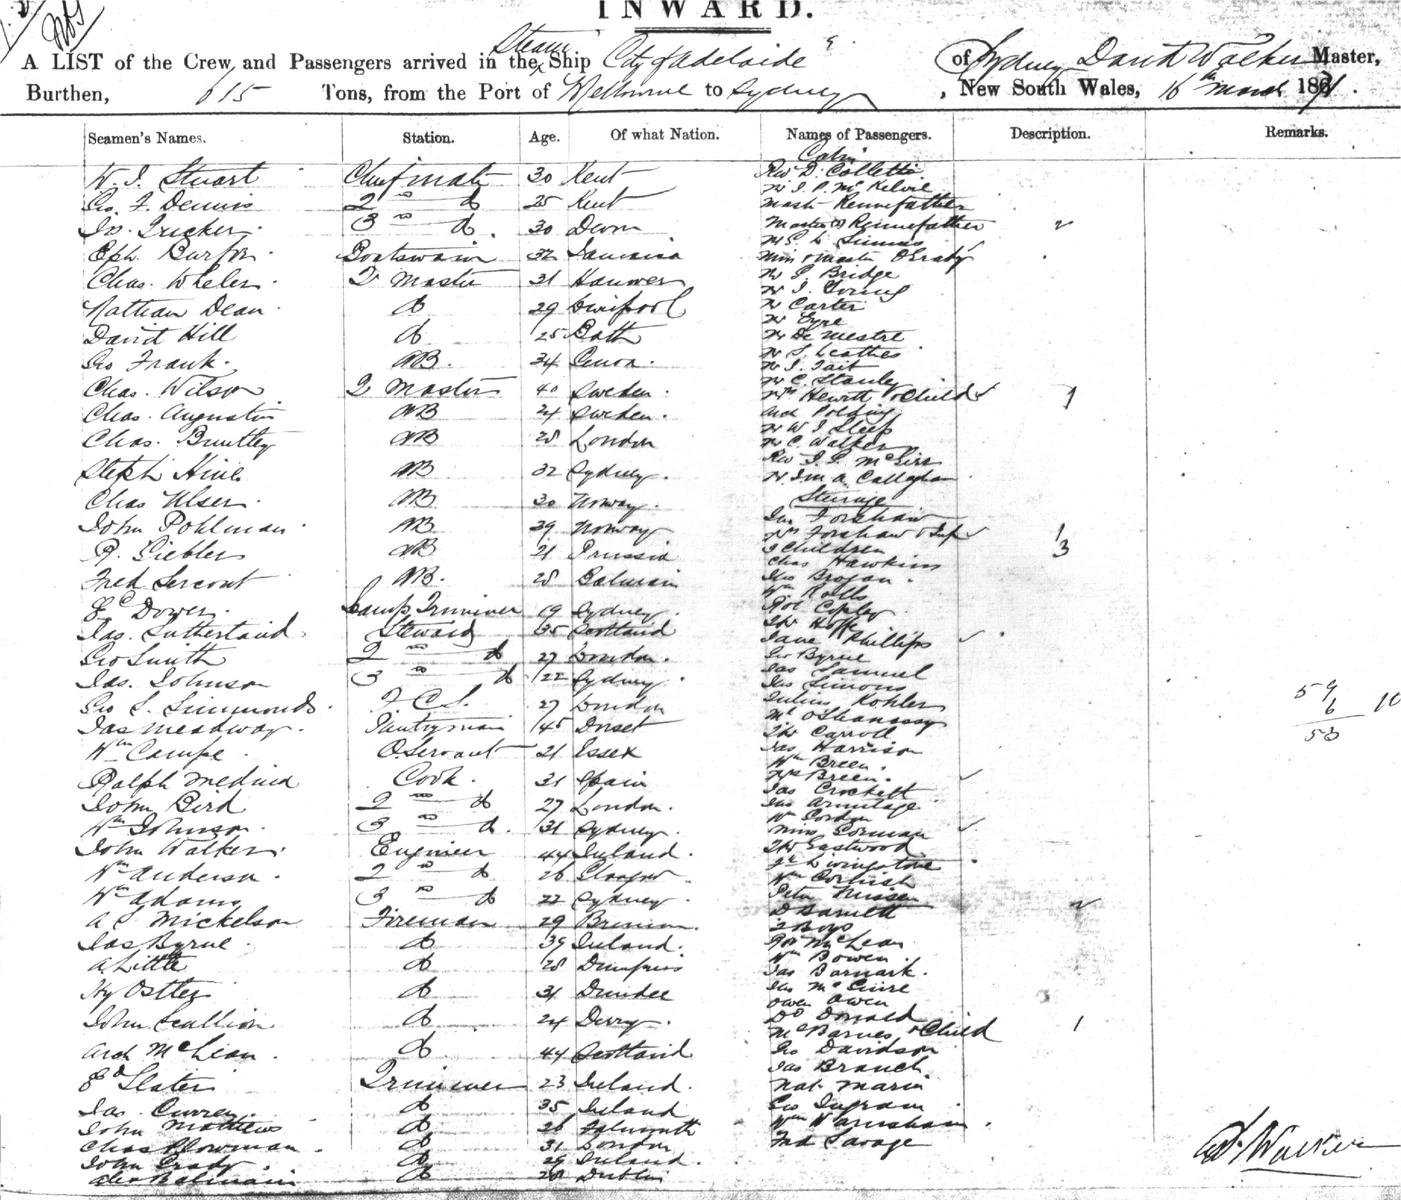 INWARD.
A LIST of the Crew and Passengers arrived in the Steam Ship City of Adelaide of Sydney David Walker Master,
Burthen, 615 Tons, from the Port of Melbourne to Sydney, New South Wales, 16th March 1871.
Seamen's Names. Station. Age. Of what Nation. Names of Passengers. Description. Remarks.
Cabin
W. J. Stuart Chief mate 30 Kent Rev D. Colletti
Mr J. P. McKelvie
Geo. F. Dennis 2nd do 25 Kent Mast Pennefather
Jn. Tucker 3rd do. 30 Devon Masters Pennefather 2
Mr S. L. Simms
Eph. Burton Boatswain 32 Jamaica Miss & Master O'Grady
Chas. Wheler Q Master 31 Hanover Mr J Bridge
Mr J. Young
Nathan Dean do 29 Liverpool Mr Carter
Mr Eyre
David Hill do 25 Bath Mr De Mestre
Mr S. Leathes
Geo Frank. AB. 34 Genoa. Mr J. Tait
Mr C. Stanley
Chas. Wilson Q Master 40 Sweden. Mrs Hewitt & Child 1
Chas. Augustin AB 24 Sweden.
Mr W J Sleep
Chas. Buntley AB 28 London Mr C. Walker
Steph Hine AB 32 Sydney.
Steerage
Chas Ulser. AB 30 Norway.
Jas Forshaw
John Pohlman AB 29 Norway Mrs Forshaw & Inf 1
3 Children 3
P. Siebler AB 21 Prussia Chas Hawkins
Fred Sercout AB. 28 Balmain Geo Brogan.
Wm Rolls
Lamp Trimmer 19 Sydney. Rob Copley
Jas. Sutherland Steward 35 Scotland
Jane Phillips
Geo Smith 2nd do 27 London. Geo Byrne
Jas Samuel
Jas. Johnson 3rd do 22 Sydney. Jas Simons
Geo S. Simmonds. F. C. S. 27 London Julius Kohler
Mr O'Shanassy
Jas Meadway. Pantryman 45 Dorset Thos Carroll
59
6 10
53
Wm Campe O. Servant 21 Essex Jas Harrison
Wm Breen.
Ralph Medina Cook. 31 Spain Mrs Breen.
Jas Crockett
John Bird 2nd do 27 London. Jas Armitage
Wm Gordon
Wm Johnson. 3rd do. 31 Sydney. Miss Gorman
John Walker. Engineer 44 Ireland. Thos Eastwood
Livingstone
Wm Anderson. 2nd do 26 Glasgow Wm Cornish
Wm Adams 3rd do 22 Sydney. Peter Nissen 2
A S Mickelson Fireman 29 Bremen D Barnett
2 Boys
Jas Byrne. do 39 Ireland. Rob McLean
A Little do 28 Dumfries Wm Bowen.
Jas Barnark.
Hy Ostler do 31 Dundee Jas McGuire
Owen Owen
John Scullion do 24 Derry. Do Donald
Mrs Barnes & Child 1
Arch McLean. do 44 Scotland Geo Davidson
Jas Branch.
Ed Slater Trimmer 23 Ireland. Nat. Marin
Jas. Currey. do 35 Ireland Geo Ingram.
John Mathews do 26 Falmouth Wm Warnsham.
Chas Plowman. do 31 London Fred Savage
John Grady. do 29 Ireland.
Alex Balmain do 28 Dublin
Dd Walker